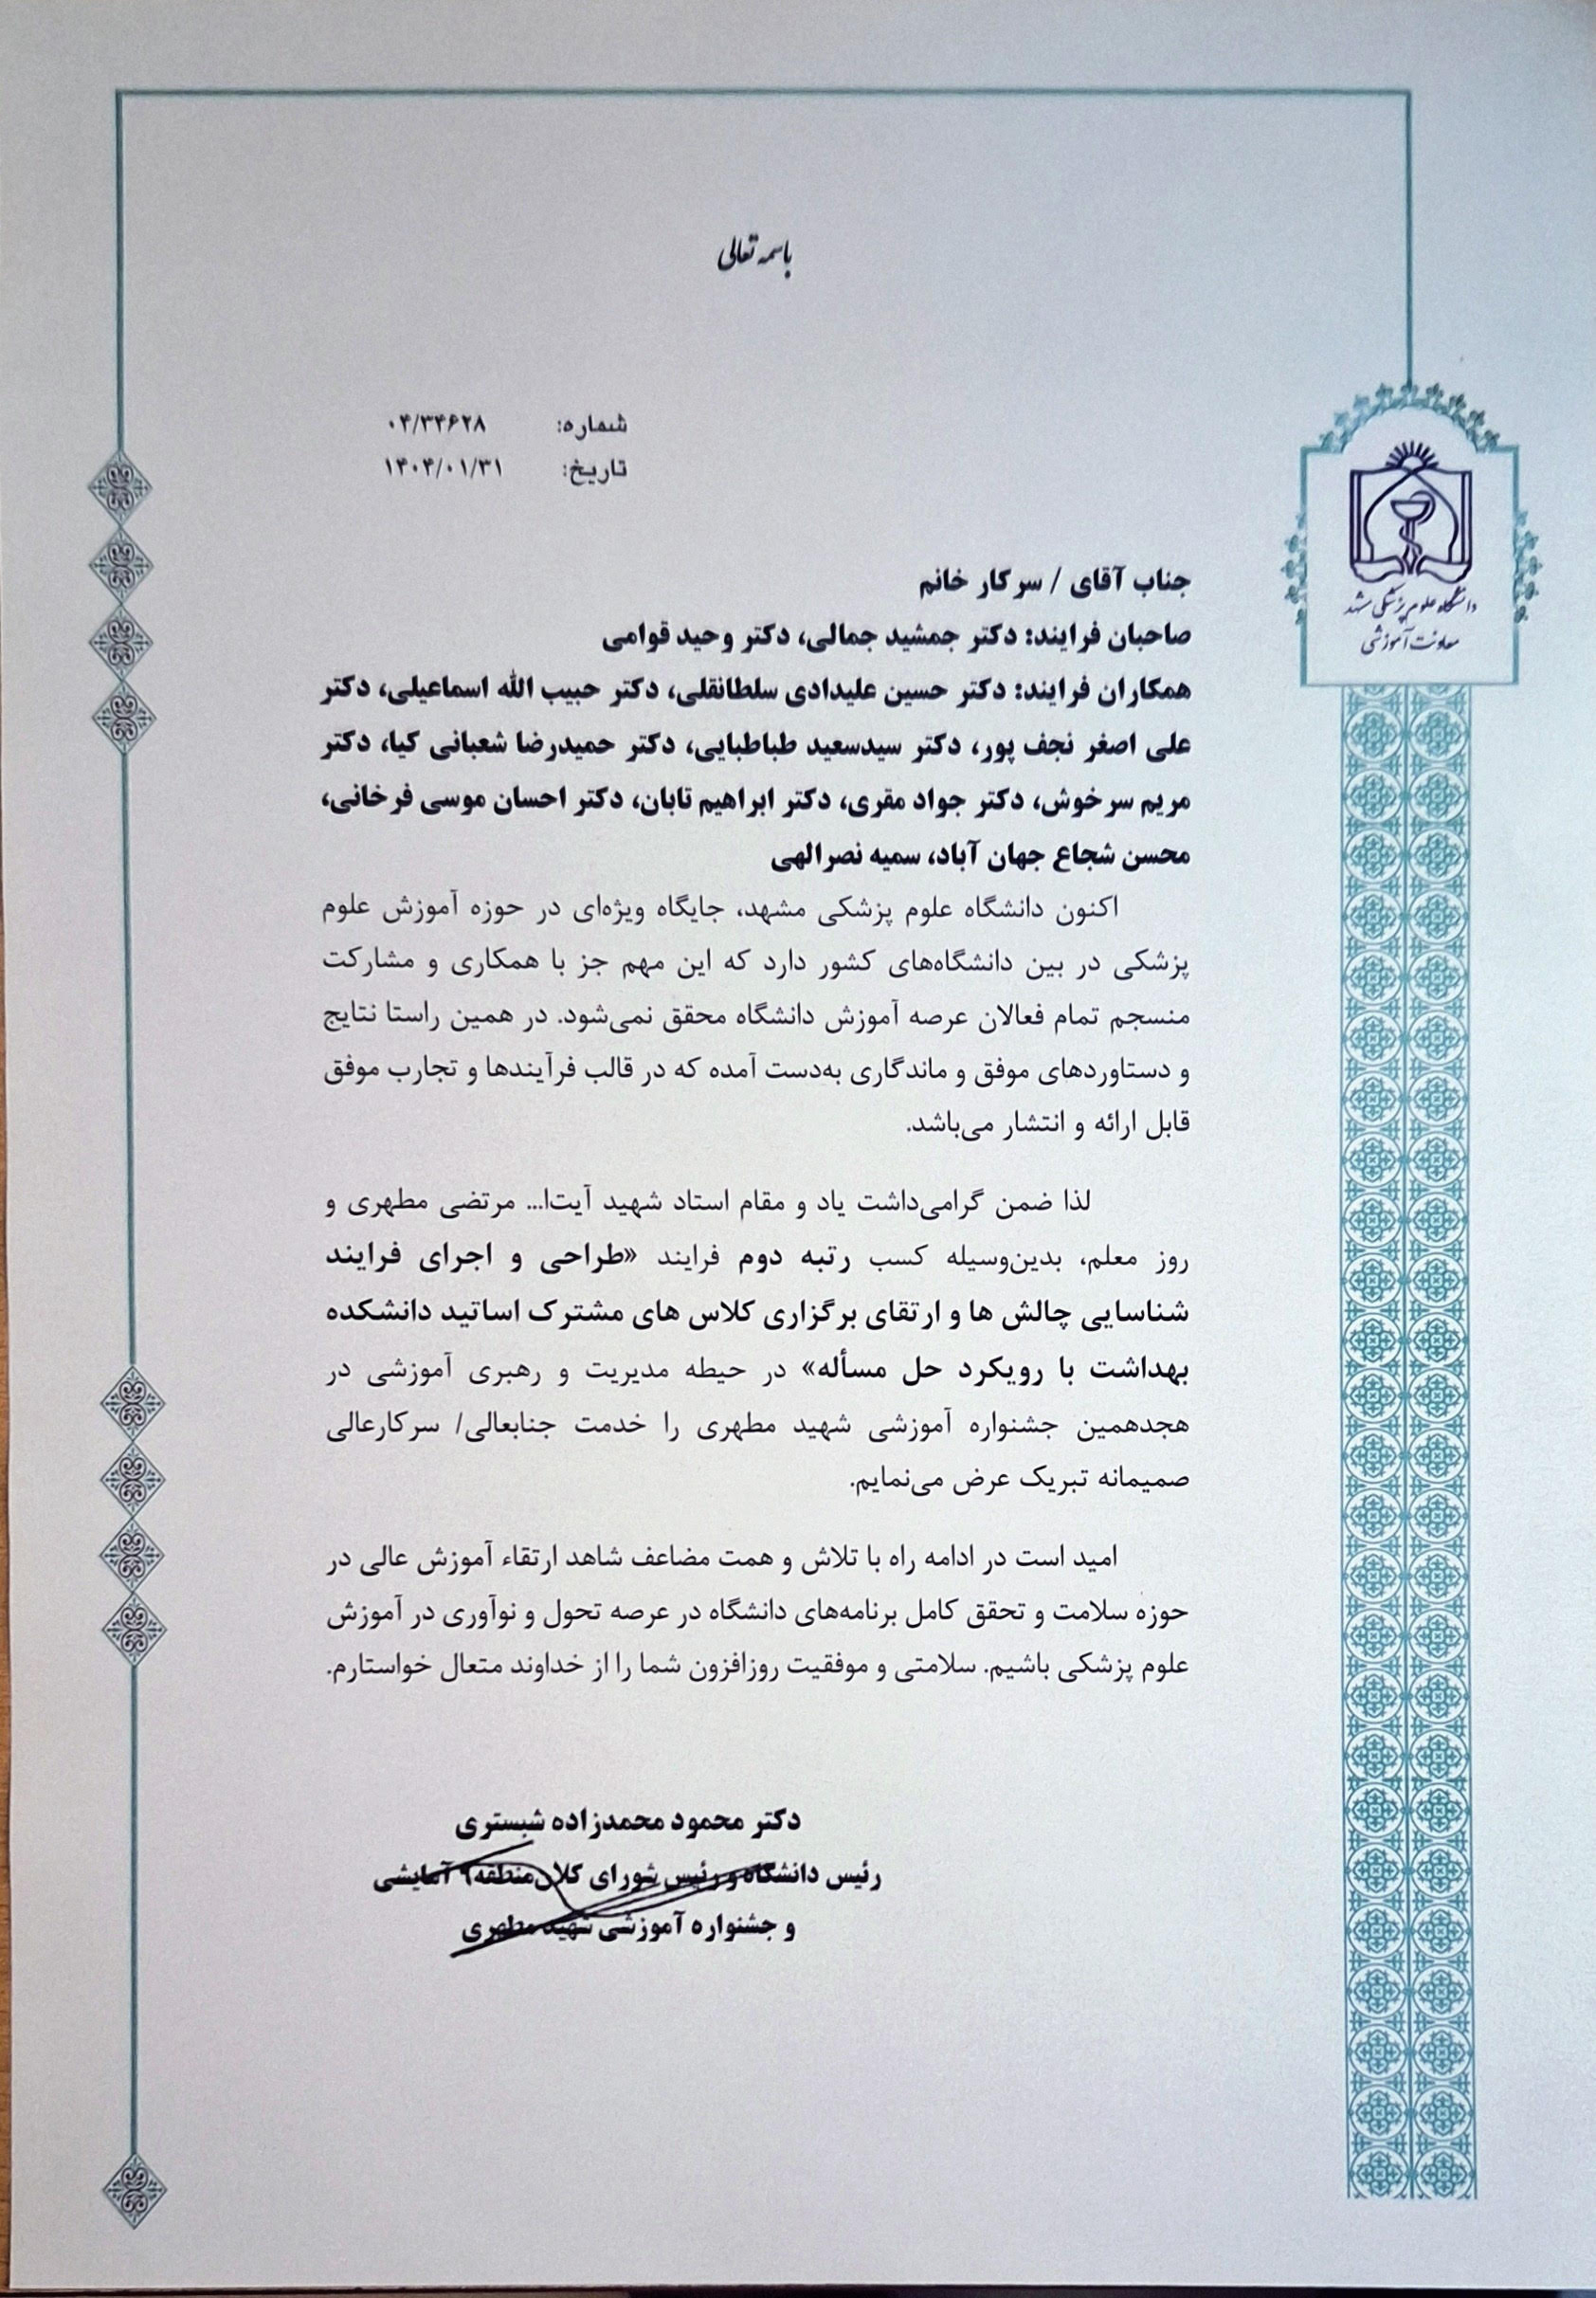 باسمه تعالی
شماره: ۰۴/۳۴۶۲۸
تاریخ: ۱۴۰۴/۰۱/۳۱
دانشگاه علوم پزشکی مشهد
معاونت آموزشی
جناب آقای / سرکار خانم
صاحبان فرایند: دکتر جمشید جمالی، دکتر وحید قوامی
همکاران فرایند: دکتر حسین علیدادی سلطانقلی، دکتر حبیب الله اسماعیلی، دکتر
علی اصغر نجف پور، دکتر سیدسعید طباطبایی، دکتر حمیدرضا شعبانی کیا، دکتر
مریم سرخوش، دکتر جواد مقری، دکتر ابراهیم تابان، دکتر احسان موسی فرخانی،
محسن شجاع جهان آباد، سمیه نصرالهی
اکنون دانشگاه علوم پزشکی مشهد، جایگاه ویژه‌ای در حوزه آموزش علوم
پزشکی در بین دانشگاه‌های کشور دارد که این مهم جز با همکاری و مشارکت
منسجم تمام فعالان عرصه آموزش دانشگاه محقق نمی‌شود. در همین راستا نتایج
و دستاوردهای موفق و ماندگاری به‌دست آمده که در قالب فرآیندها و تجارب موفق
قابل ارائه و انتشار می‌باشد.
لذا ضمن گرامی‌داشت یاد و مقام استاد شهید آیت‌ا... مرتضی مطهری و
روز معلم، بدین‌وسیله کسب رتبه دوم فرایند «طراحی و اجرای فرایند
شناسایی چالش ها و ارتقای برگزاری کلاس های مشترک اساتید دانشکده
بهداشت با رویکرد حل مسأله» در حیطه مدیریت و رهبری آموزشی در
هجدهمین جشنواره آموزشی شهید مطهری را خدمت جنابعالی/ سرکارعالی
صمیمانه تبریک عرض می‌نمایم.
امید است در ادامه راه با تلاش و همت مضاعف شاهد ارتقاء آموزش عالی در
حوزه سلامت و تحقق کامل برنامه‌های دانشگاه در عرصه تحول و نوآوری در آموزش
علوم پزشکی باشیم. سلامتی و موفقیت روزافزون شما را از خداوند متعال خواستارم.
دکتر محمود محمدزاده شبستری
رئیس دانشگاه و رئیس شورای کلان منطقه۹ آمایشی
و جشنواره آموزشی شهید مطهری